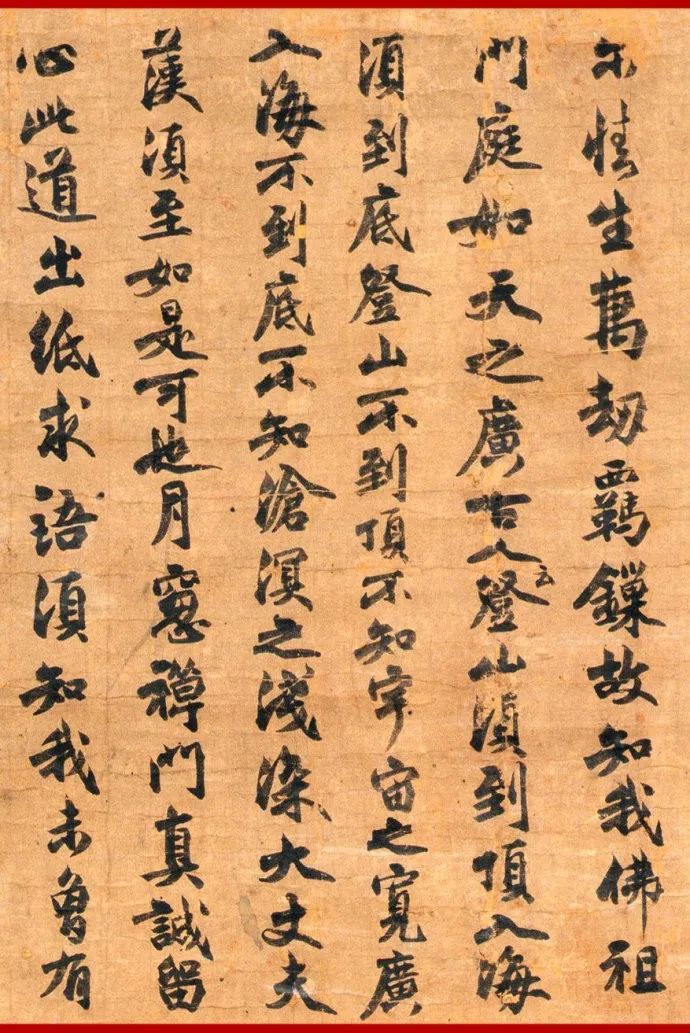 尓情生萬劫羈鏁故知我佛祖
門庭如天之廣古人云登山須到頂入海
須到底登山不到頂不知宇宙之寬廣
入海不到底不知滄溟之浅深大丈夫
漢須至如是可也月窓禪門真誠留
心此道出紙求語須知我未曾有